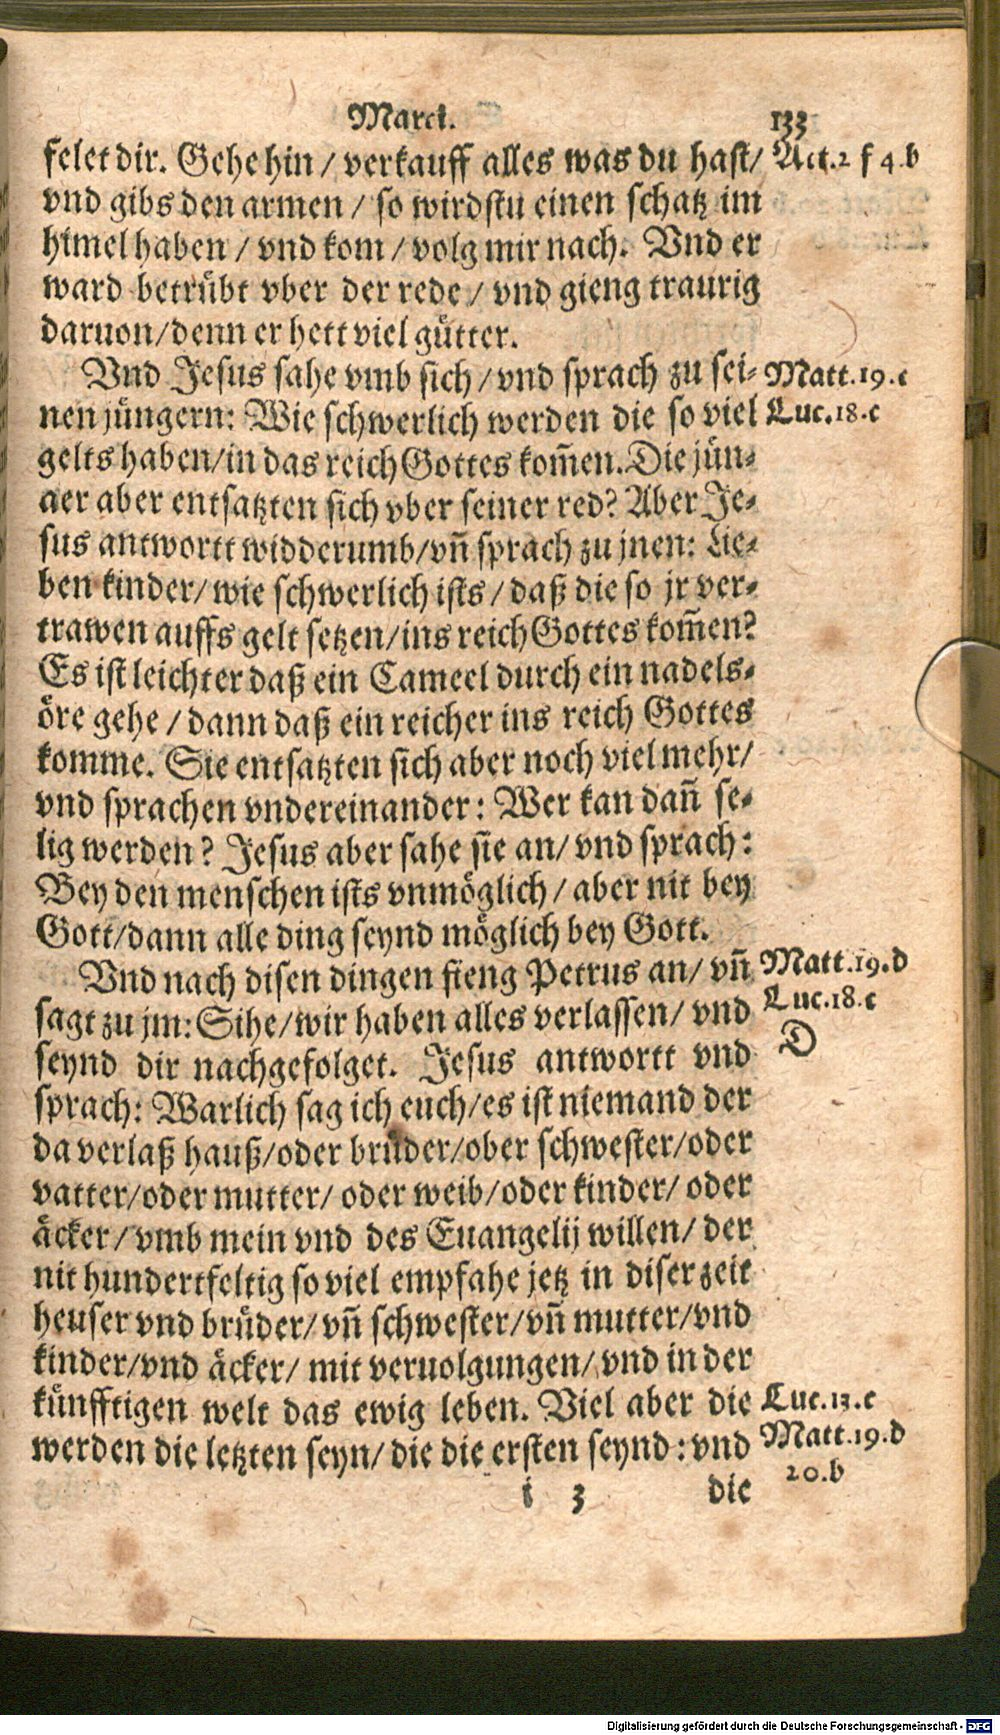 Marci. 133
felet dir. Gehe hin / verkauff alles was du hast/ Act.2 f 4.b
vnd gibs den armen / so wirdstu einen schatz im
himel haben / vnd kom / volg mir nach. Vnd er
ward betrübt vber der rede / vnd gieng traurig
daruon/denn er hett viel gütter.
Vnd Jesus sahe vmb sich / vnd sprach zu sei⸗ Matt.19.c
nen jüngern: Wie schwerlich werden die so viel Luc.18.c
gelts haben/in das reich Gottes kom̃en. Die jün⸗
ger aber entsatzten sich vber seiner red? Aber Je⸗
sus antwortt widderumb/vñ sprach zu jnen: Lie⸗
ben kinder/ wie schwerlich ists / daß die so jr ver⸗
trawen auffs gelt setzen/ins reich Gottes kom̃en?
Es ist leichter daß ein Cameel durch ein nadels⸗
öre gehe / dann daß ein reicher ins reich Gottes
komme. Sie entsatzten sich aber noch viel mehr/
vnd sprachen vndereinander: Wer kan dañ se⸗
lig werden? Jesus aber sahe sie an/ vnd sprach:
Bey den menschen ists vnmöglich / aber nit bey
Gott/dann alle ding seynd möglich bey Gott.
Vnd nach disen dingen fieng Petrus an/ vñ Matt.19.d
sagt zu jm: Sihe/wir haben alles verlassen/ vnd Luc.18.c
seynd dir nachgefolget. Jesus antwortt vnd D
sprach: Warlich sag ich euch/es ist niemand der
da verlaß hauß/oder brüder/ober schwester/oder
vatter/oder mutter/ oder weib/oder kinder/ oder
äcker / vmb mein vnd des Euangelij willen/ der
nit hundertfeltig so viel empfahe jetz in diser zeit
heuser vnd brüder/ vñ schwester/vñ mutter/vnd
kinder/vnd äcker/ mit veruolgungen/ vnd in der
künfftigen welt das ewig leben. Viel aber die Luc.13.c
werden die letzten seyn/ die die ersten seynd: vnd Matt.19.d
20.b
i 3 die
Digitalisierung gefördert durch die Deutsche Forschungsgemeinschaft - DFG